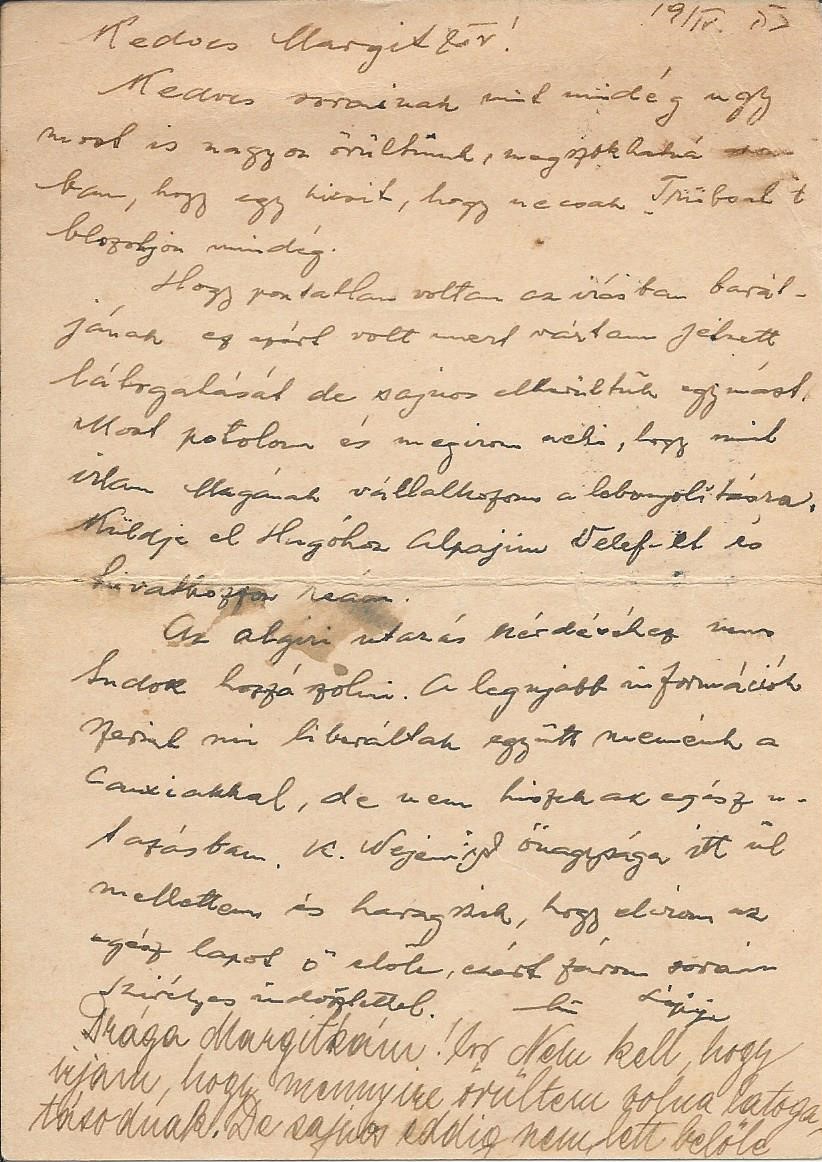 19/IV.
Kedves Margit
Kedves sorainak mint mindég ugy
most is nagyon örültünk, megszokhatná
ban, hogy egy kicsit, hogy necsak
mindég.
Hogy pontatlan voltam az irásban barát-
jának ez azért volt mert vártam jelzett
látogatását de sajnos elkerültük egymást.
Most potolom és megirom neki, hogy mint
irtam Magának vállalkozom a lebonyolitásra.
Küldje el Hugóhoz és
hivatkozzon reám.
Az utazás kérdéséhez nem
tudok hozzászólni. A legujabb információk
szerint mi liberáltak együtt mennénk a
de nem hiszek az egész u-
tazásban. K. őnagysága itt ül
mellettem és haragszik, hogy elirom az
egész lapot ő előle, ezért zárom soraim
szivélyes üdvözlettel.
Drága Margitkám! Nem kell, hogy
irjam, hogy mennyire örültem volna látoga-
tásodnak. De sajnos eddig nem lett belőle